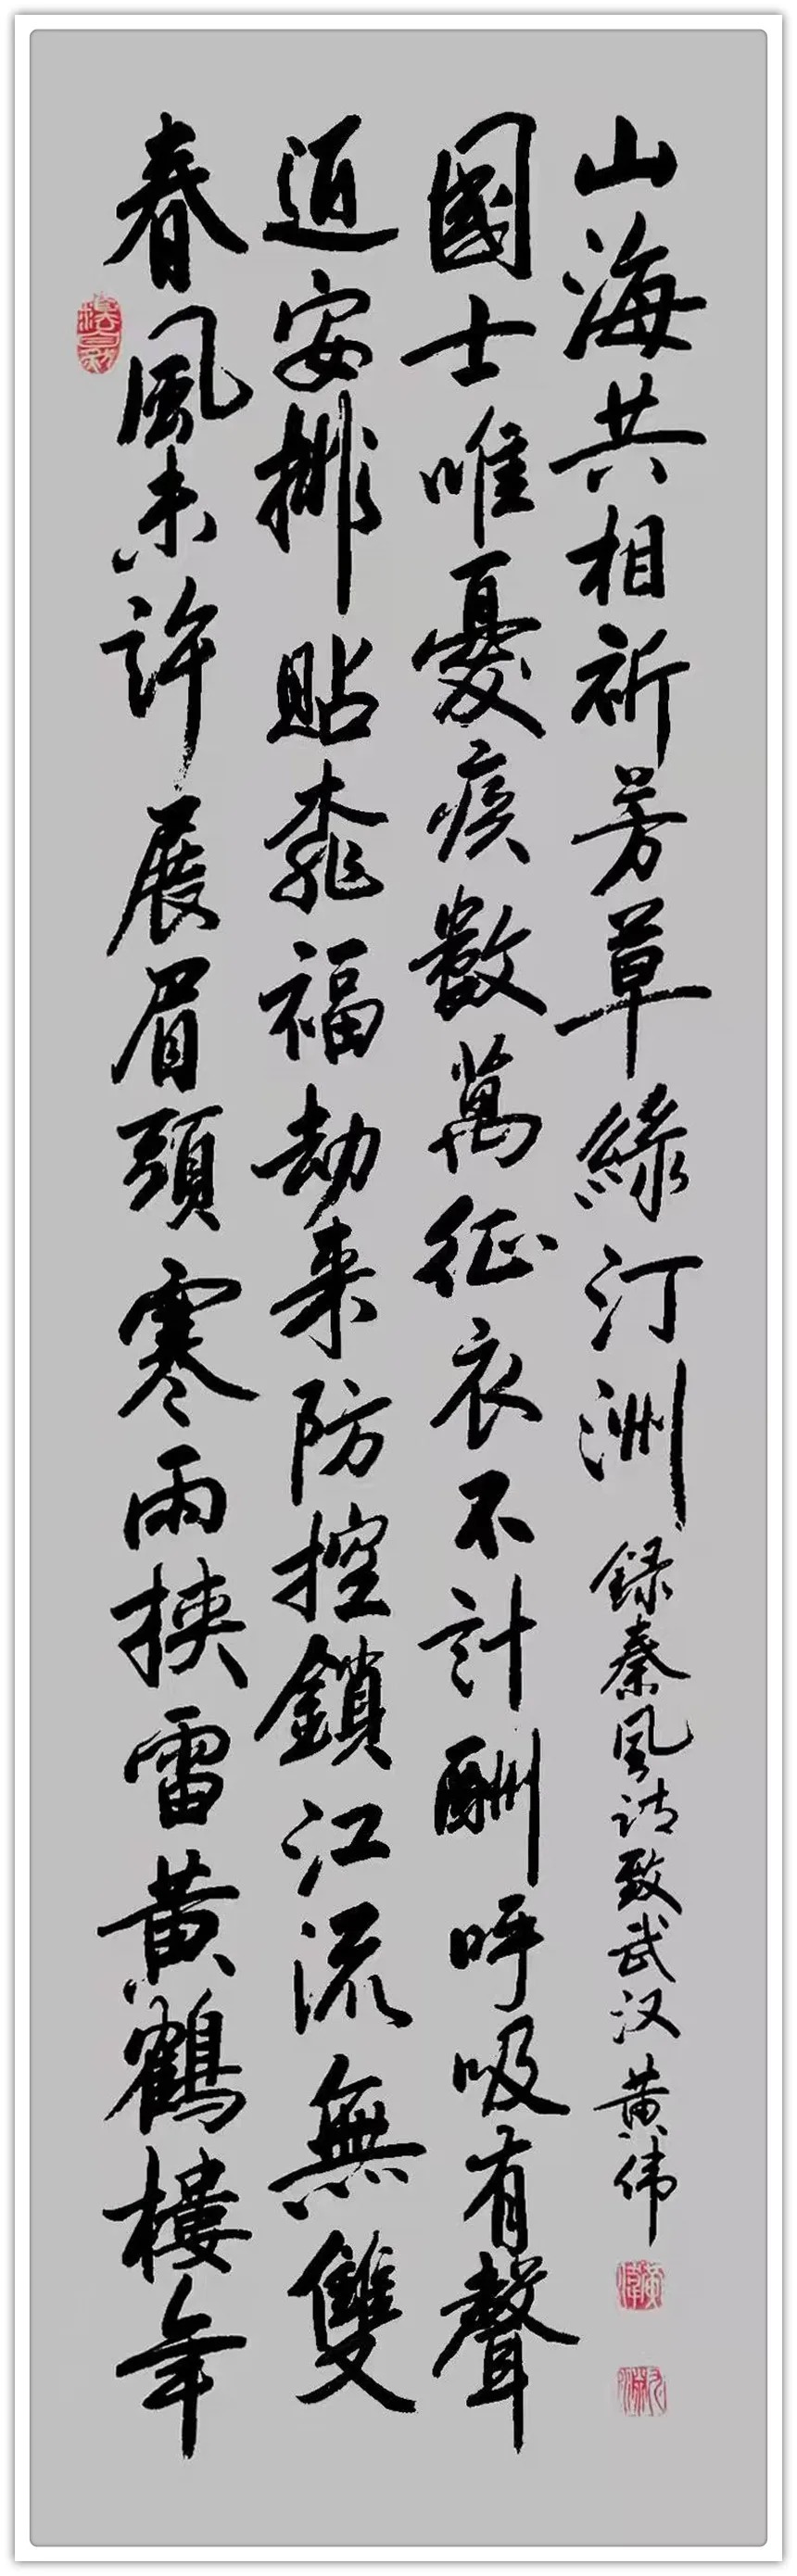 春風未許展眉頭寒雨挾雷黃鶴樓年
安排貼桃福劫来防控鎖江流無雙
國士唯憂疾數萬征衣不計酬呼吸有聲
山海共相祈芳草綠汀洲
録秦风诗致武汉 黄伟